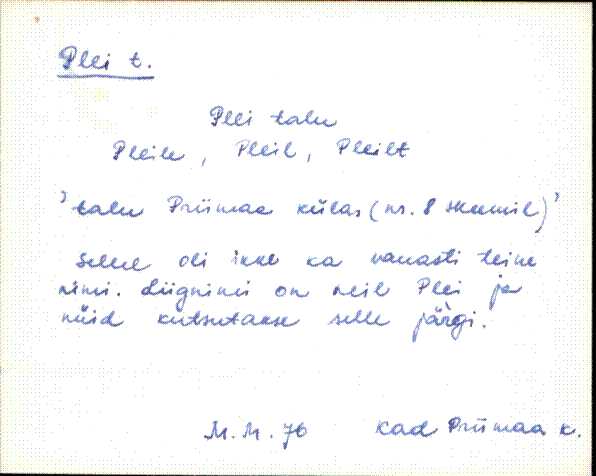 Plei t.
Plei talu
Pleile, Pleil, Pleilt
'talu Priimaa külas (nr. 8 skeemil)'
Sellel oli ikke ka vanasti teine
nimi. Liignimi on neil Plei ja
nüid kutsutakse selle järgi.
M.M. 76 Kad Priimaa k.